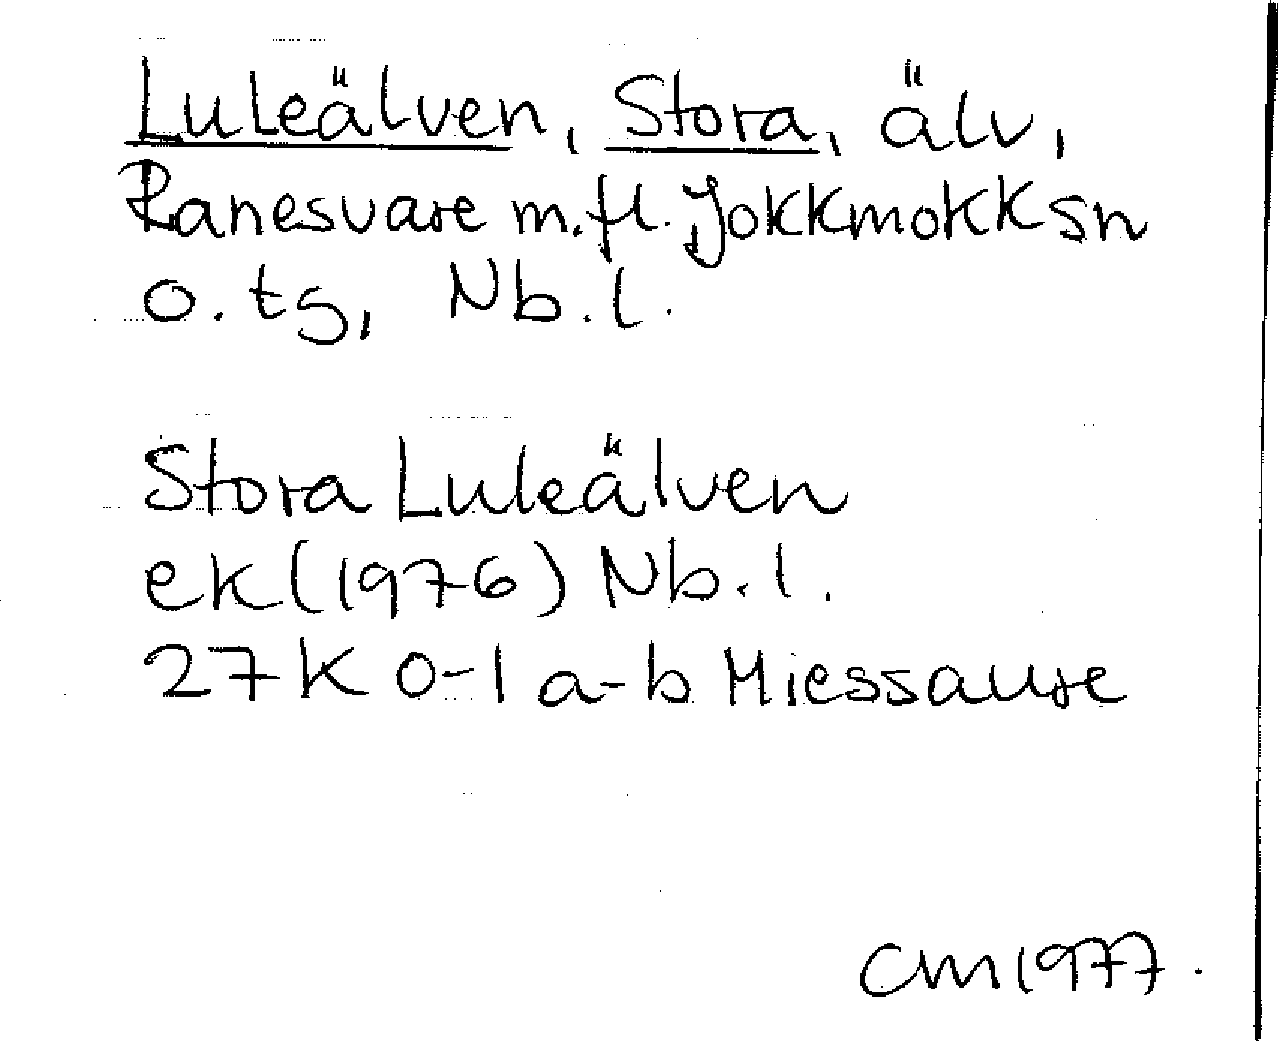 Luleälven, Stora, älv,
Ranesvare m.fl. Jokkmokk sn
o. tg, Nb.l.
Stora Luleälven
ek (1976) Nb.l.
27K 0-1 a-b Messaure
CM 1977.